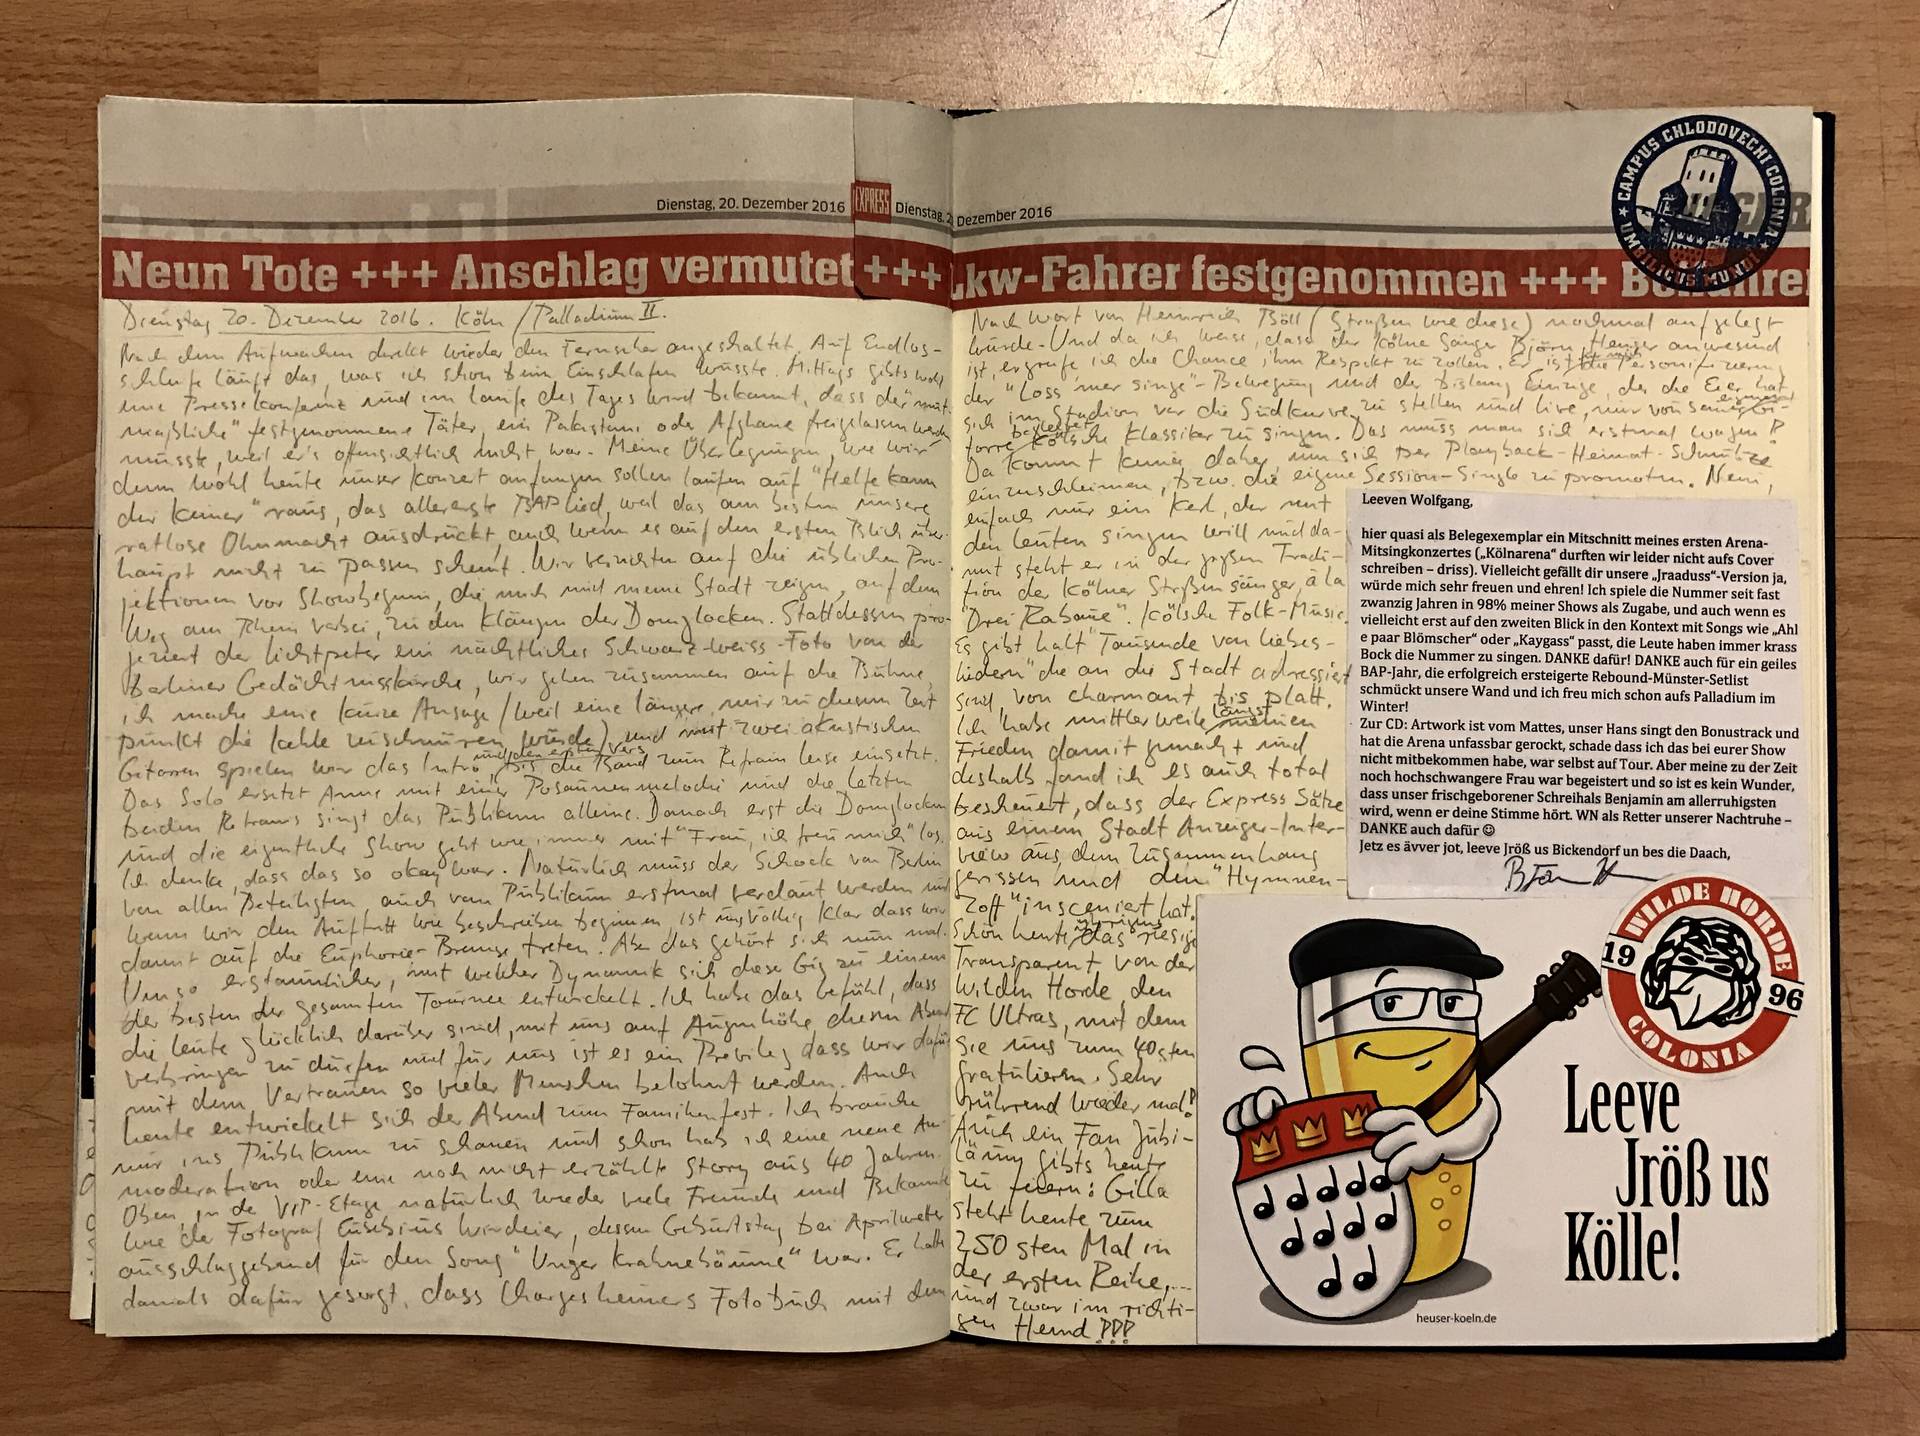 Dienstag, 20. Dezember 2016
EXPRESS
Dienstag, 2
Dezember 2016
Neun Tote +++ Anschlag vermutet +++
Lkw-Fahrer festgenommen +++
CAMPUS CHLODOVECHI COLONIA
UMBILICUS MUNDI
Dienstag 20. Dezember 2016. Köln / Palladium II.
Nach dem Aufwachen direkt wieder den Fernseher angeschaltet. Auf Endlos-
schleife läuft das, was ich schon beim Einschlafen wusste. Mittags gibts wohl
eine Pressekonferenz und im laufe des Tages wird bekannt, dass der "mut-
maßliche" festgenommene Täter, ein Pakistani oder Afghane freigelassen werden
müsste, weil er's offensichtlich nicht war. Meine Überlegungen, wie wir
denn wohl heute unser Konzert anfangen sollen laufen auf "Helfe kann
der keiner" raus, das allererste BAP lied, weil das am besten unsere
ratlose Ohnmacht ausdrückt, auch wenn es auf den ersten Blick über-
haupt nicht zu passen scheint. Wir verzichten auf die üblichen Pro-
jektionen vor Showbeginn, die mich und meine Stadt zeigen, auf dem
Weg am Rhein vorbei, zu den Klängen der Domglocken. Stattdessen pro-
jeziert der lichtpeter ein nächtliches Schwarz-weiss-Foto von der
Berliner Gedächtniskirche, wir gehen zusammen auf die Bühne,
ich mache eine kurze Ansage (weil eine längere mir zu diesem Zeit
punkt die kehle zuschnüren würde) und mit zwei akustischen
Gitarren spielen wir das Intro und den ersten Vers, bis die Band zum Refrain leise einsetzt.
Das Solo ersetzt Anne mit einer Posaunenmelodie und die letzten
beiden Refrains singt das Publikum alleine. Danach erst die Domglocken
und die eigentliche Show geht wie immer mit "Frau, ich freu mich" los.
Ich denke, dass das so okay war. Natürlich muss der Schock von Berlin
von allen Beteiligten, auch vom Publikum erstmal verdaut werden und
wenn wir den Auftritt wie beschrieben beginnen, ist uns völlig klar dass wir
damit auf die Euphorie-Bremse treten. Aber das gehört sich nun mal.
Umso erstaunlicher, mit welcher Dynamik sich diese Gig zu einem
der besten der gesamten Tournee entwickelt. Ich habe das Gefühl, dass
die leute glücklich darüber sind, mit uns auf Augenhöhe diesen Abend
verbringen zu dürfen und für uns ist es ein Privileg dass wir dafür
mit dem Vertrauen so vieler Menschen belohnt werden. Auch
heute entwickelt sich der Abend zum Familienfest. Ich brauche
nur ins Publikum zu schauen und schon hab ich eine neue An-
moderation oder eine noch nicht erzählte Story aus 40 Jahren.
Oben, in der VIP-Etage natürlich wieder viele Freunde und Bekannte
wie der Fotograf Eusebius Wirdeier, dessen Geburtstag bei Aprilwetter
ausschlaggebend für den Song "Unger Krahnebäume" war. Er hatte
damals dafür gesorgt, dass Chargesheimers Fotobuch mit dem
Nach Wort von Heinrich Böll (Straßen wie diese) nochmal aufgelegt
wurde. Und da ich weiss, dass der Kölne Sänger Björn Heuser anwesend
ist, ergreife ich die Chance, ihm Respekt zu zollen. Er ist für mich die Personifizierung
der "Loss mer singe"-Bewegung und der bislang Einzige, der die Eier hat
sich im Stadion vor die Südkurve zu stellen und live, nur von seiner Gi-
tarre begleitet kölsche Klassiker zu singen. Das muss man sich erstmal wagen!!
Da kommt keiner daher, um sich per Playback-Heimat-Schnulze
einzuschleimen, bzw. die eigene Session-Single zu promoten. Nein,
einfach nur ein Kerl, der mit
den leuten singen will und da-
mit steht er in der großen Tradi-
tion der Kölner Straßensänger à la
"Drei Rabaue". Kölsche Folk-Music.
Es gibt halt "Tausende von liebes-
liedern" die an die Stadt adressiert
sind, von charmant bis platt.
Ich habe mittlerweile längst meinen
Frieden damit gemacht und
deshalb fand ich es auch total
bescheuert, dass der Express Sätze
aus einem Stadt Anzeiger-Inter-
view aus dem Zusammenhang
gerissen und den "Hymnen-
Zoff" inszeniert hat.
Schön heute übrigens das riesige
Transparent von der
Wilden Horde, den
FC Ultras, mit dem
sie uns zum 40sten
gratulieren. Sehr
rührend wieder mal!
Auch ein Fan Jubi-
läum gibts heute
zu feiern: Gilla
steht heute zum
250 sten Mal in
der ersten Reihe,...
und zwar im richti-
gen Hemd !!!
Leeven Wolfgang,
hier quasi als Belegexemplar ein Mitschnitt meines ersten Arena-
Mitsingkonzertes („Kölnarena“ durften wir leider nicht aufs Cover
schreiben – driss). Vielleicht gefällt dir unsere „Jraaduss“-Version ja,
würde mich sehr freuen und ehren! Ich spiele die Nummer seit fast
zwanzig Jahren in 98% meiner Shows als Zugabe, und auch wenn es
vielleicht erst auf den zweiten Blick in den Kontext mit Songs wie „Ahl
e paar Blömscher“ oder „Kaygass“ passt, die Leute haben immer krass
Bock die Nummer zu singen. DANKE dafür! DANKE auch für ein geiles
BAP-Jahr, die erfolgreich ersteigerte Rebound-Münster-Setlist
schmückt unsere Wand und ich freu mich schon aufs Palladium im
Winter!
Zur CD: Artwork ist vom Mattes, unser Hans singt den Bonustrack und
hat die Arena unfassbar gerockt, schade dass ich das bei eurer Show
nicht mitbekommen habe, war selbst auf Tour. Aber meine zu der Zeit
noch hochschwangere Frau war begeistert und so ist es kein Wunder,
dass unser frischgeborener Schreihals Benjamin am allerruhigsten
wird, wenn er deine Stimme hört. WN als Retter unserer Nachtruhe –
DANKE auch dafür ☺
Jetz es ävver jot, leeve Jröß us Bickendorf un bes die Daach,
WILDE HORDE
19 96
COLONIA
Leeve
Jröß us
Kölle!
heuser-koeln.de